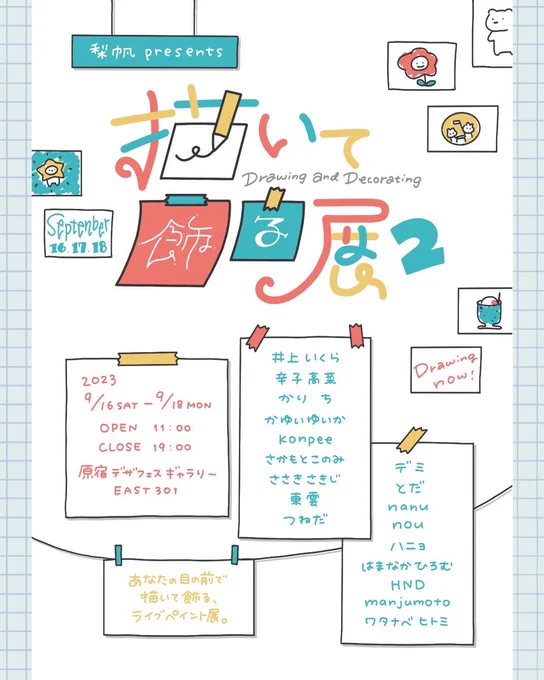 梨帆 presents
描いて
Drawing and Decorating
飾る展2
September
16.17.18
Drawing
now!
2023
9/16 SAT - 9/18 MON
OPEN 11:00
CLOSE 19:00
原宿デザフェスギャラリー
EAST 301
井上いくら
辛子高菜
かり ち
かゆいゆいか
Konpee
さかもとこのみ
ささきさきじ
東雲
つねだ
デミ
とだ
nanu
nou
ハニョ
はまなかひろむ
HND
manjumoto
ワタナベヒトミ
あなたの目の前で
描いて飾る、
ライブペイント展。